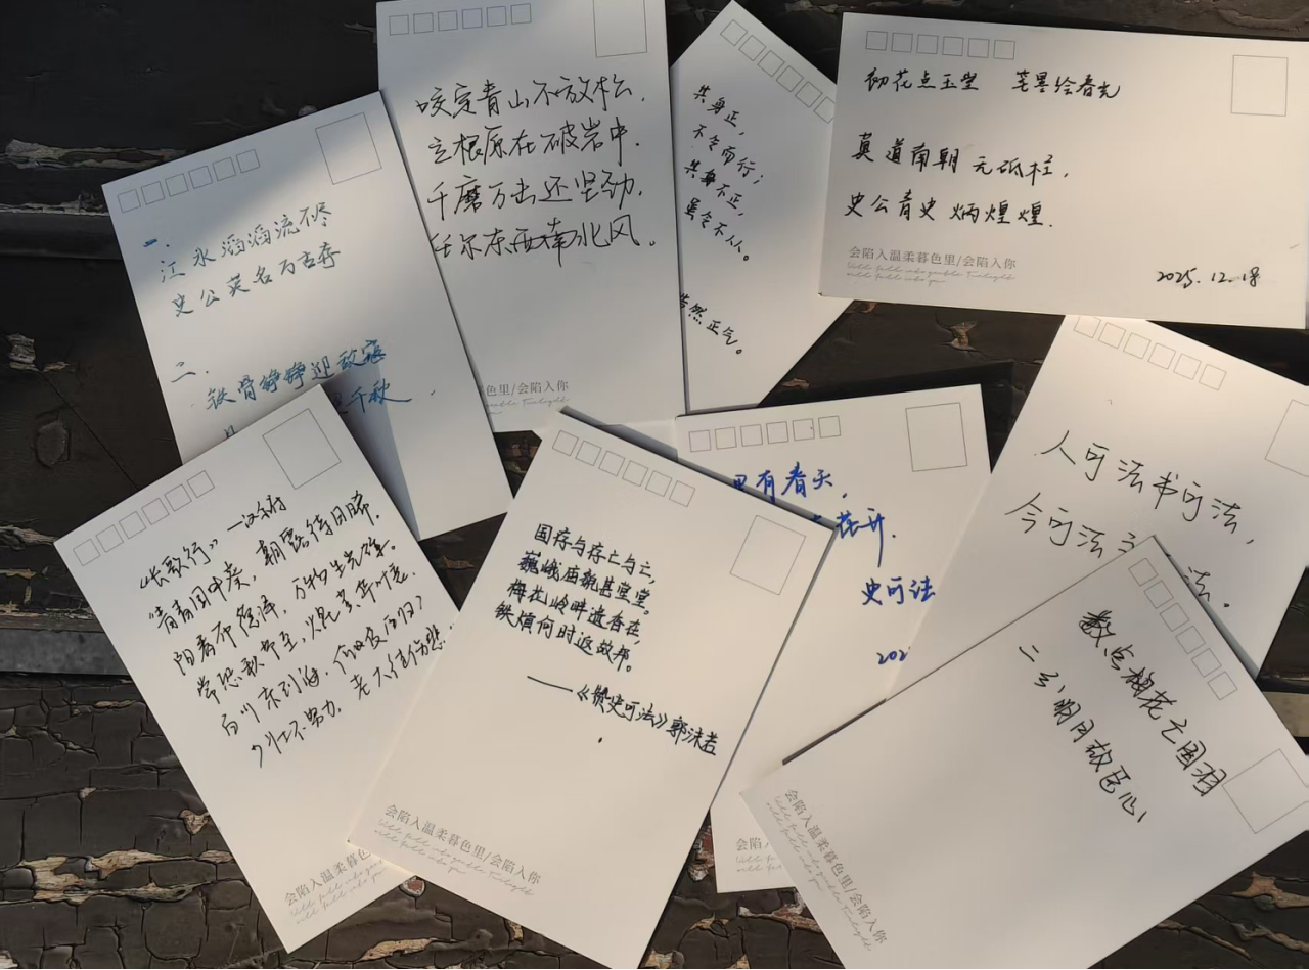 一.
江水滔滔流不尽
史公英名万古存
二.
铁骨铮铮迎敌寇
千秋.
咬定青山不放松,
立根原在破岩中.
千磨万击还坚劲,
任尔东西南北风。
色里/会陷入你
其身正,
不令而行;
其身不正,
虽令不从。
然正气。
初花点玉堂 笔墨绘春光
莫道南朝无砥柱,
史公青史炳煌煌.
2025.12.18
会陷入温柔暮色里/会陷入你
人可法书可法,
今可法
法.
里有春天,
花开.
史可法
202
会陷
《长歌行》—汉乐府
青青园中葵,朝露待日晞.
阳春布德泽,万物生光辉。
常恐秋节至,焜黄华叶衰.
百川东到海,何时复西归?
少壮不努力,老大徒伤悲.
会陷入温柔暮色
国存与存亡与亡,
巍峨庙貌甚堂堂。
梅花岭畔遗香在,
铁炮何时返故乡。
——《赞史可法》郭沫若
会陷入温柔暮色里/会陷入你
数点梅花亡国泪
二分明月故臣心
会陷入温柔暮色里/会陷入你